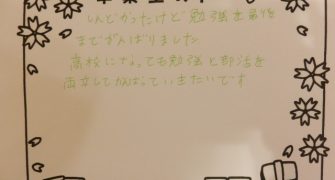 しんどかったけど勉強を最後
までがんばりました
高校になっても勉強と部活を
両立してがんばっていきたいです